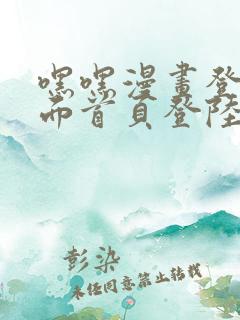 嘿嘿漫畫登
面首頁登陸
彭染
未經同意禁止轉載